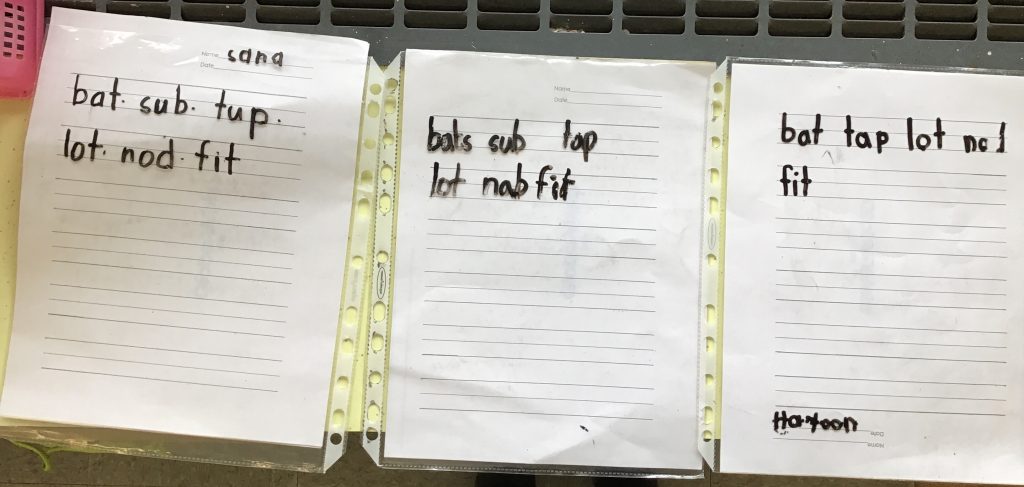 Name sana
Date
bat. sub. tup.
lot. nod. fit
Name
Date
bats sub tap
lot nab fit
bat tap lot nod
fit
Haroon
Date
Name